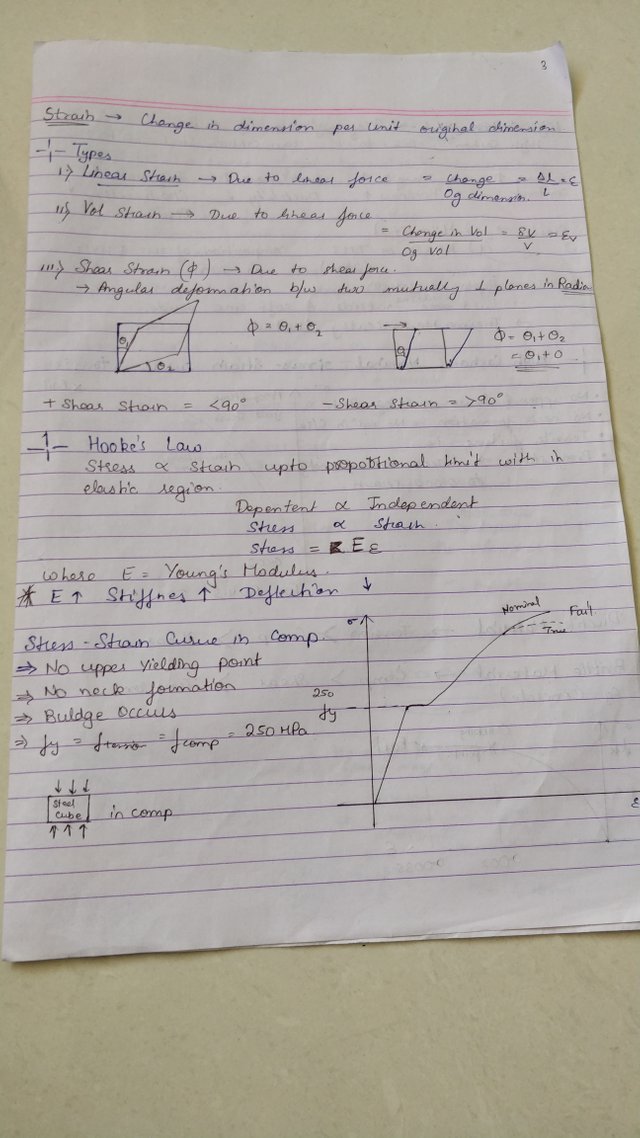 3
Strain → Change in dimension per unit original dimension.
Types
i) Linear Strain → Due to linear force = Change / Og dimension. = ΔL / L = ε
ii) Vol Strain → Due to linear force
= Change in Vol / Og Vol = δV / V = εv
iii) Shear Strain (φ) → Due to shear force.
→ Angular deformation b/w two mutually ⊥ planes in Radian
θ1 θ2 φ = θ1 + θ2
θ1 φ = θ1 + θ2
= θ1 + 0
+ Shear Strain = <90° - Shear Strain = >90°
Hooke's Law
Stress ∝ Strain upto proportional limit with in
elastic region.
Depentent ∝ Independent
Stress ∝ Strain.
Stress = E ε
where E = Young's Modulus.
* E ↑ Stiffnes ↑ Deflection ↓
Stress - Strain Curve in Comp.
⇒ No upper Yielding point
⇒ No neck formation
⇒ Buldge Occurs
⇒ fy = ftension = fcomp = 250 MPa
σ Nominal Fail
True
250
fy
ε
Steel
Cube
in comp